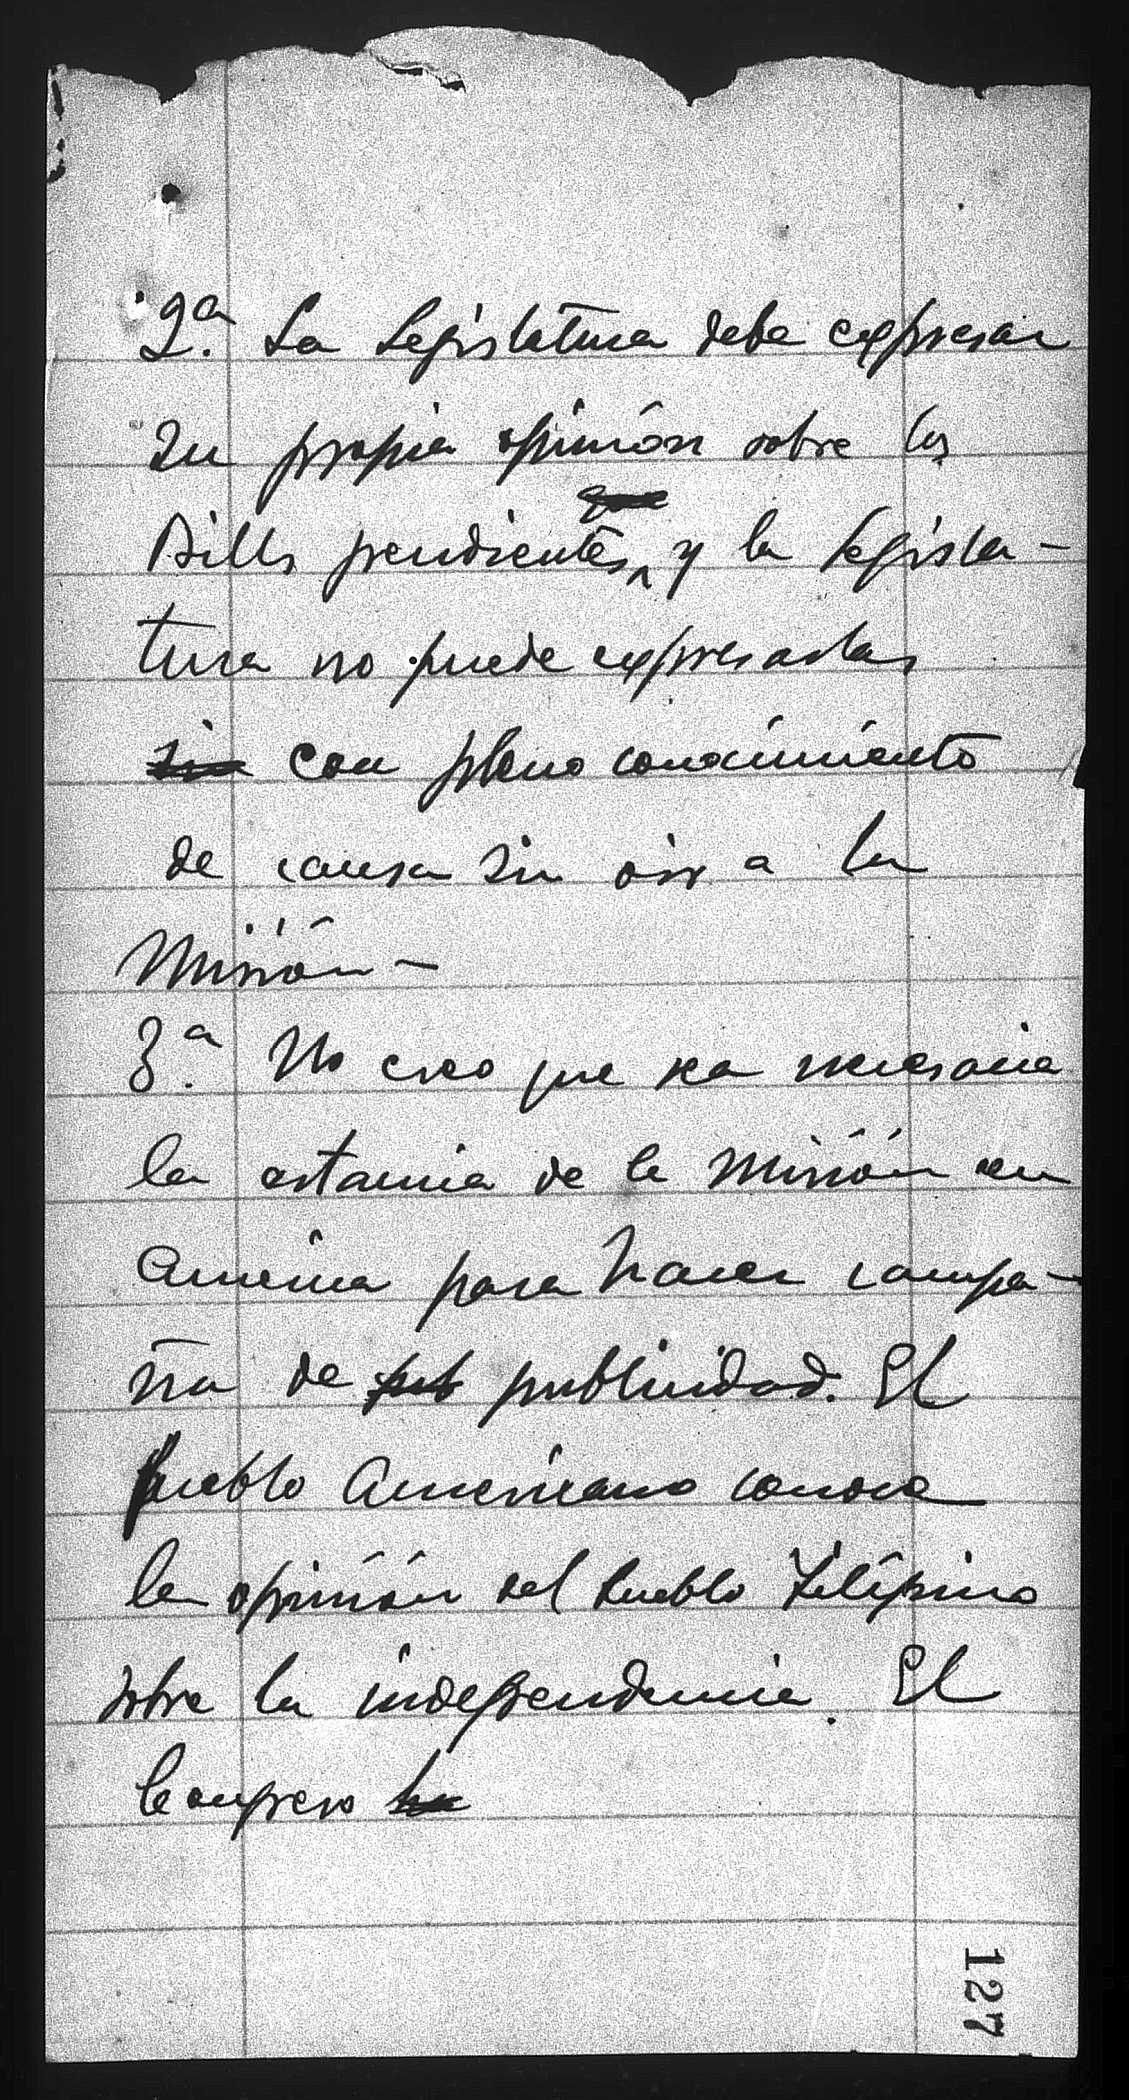 2ª. La Legislatura debe expresar
su propia opinión sobre los
que
Bills pendientes, y la Legisla-
tura no puede expresarlas
sin con pleno conocimiento
de causa sin oir a la
Misión-
3ª. No creo que sea necesaria
la estancia de la Misión en
America para hacer campa-
ña de pub publicidad. El
pueblo Americano conoce
la opinión del Pueblo Filipino
sobre la independencia. El
Congreso ha
127